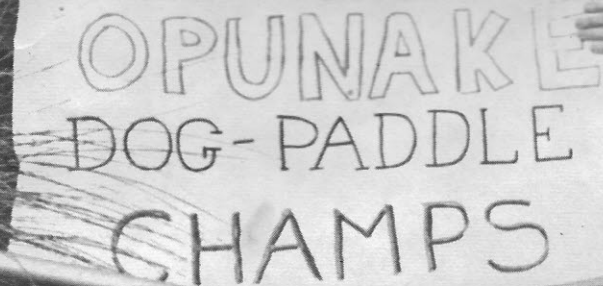 OPUNAKE
DOG-PADDLE
CHAMPS